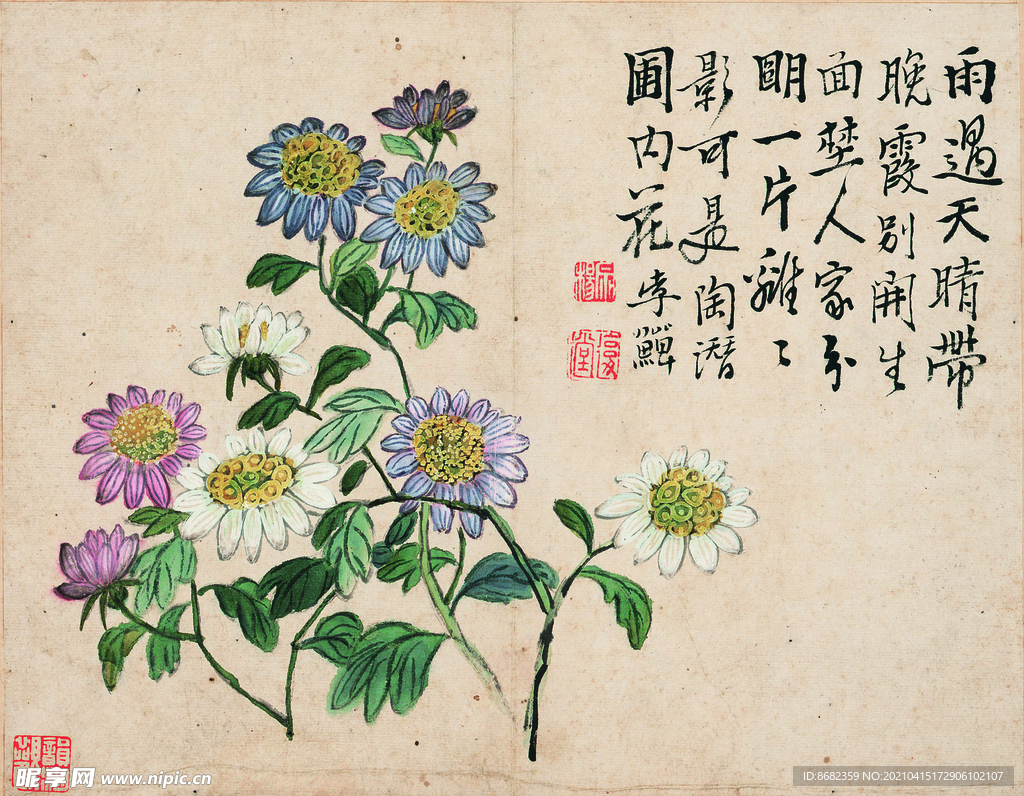 雨過天晴帶
晚霞別開生
面埜人家分
朙一片籬〻
影可是陶潛
圃内花 李鱓
昵享网 www.nipic.cn
ID:8682359 NO:20210415172906102107